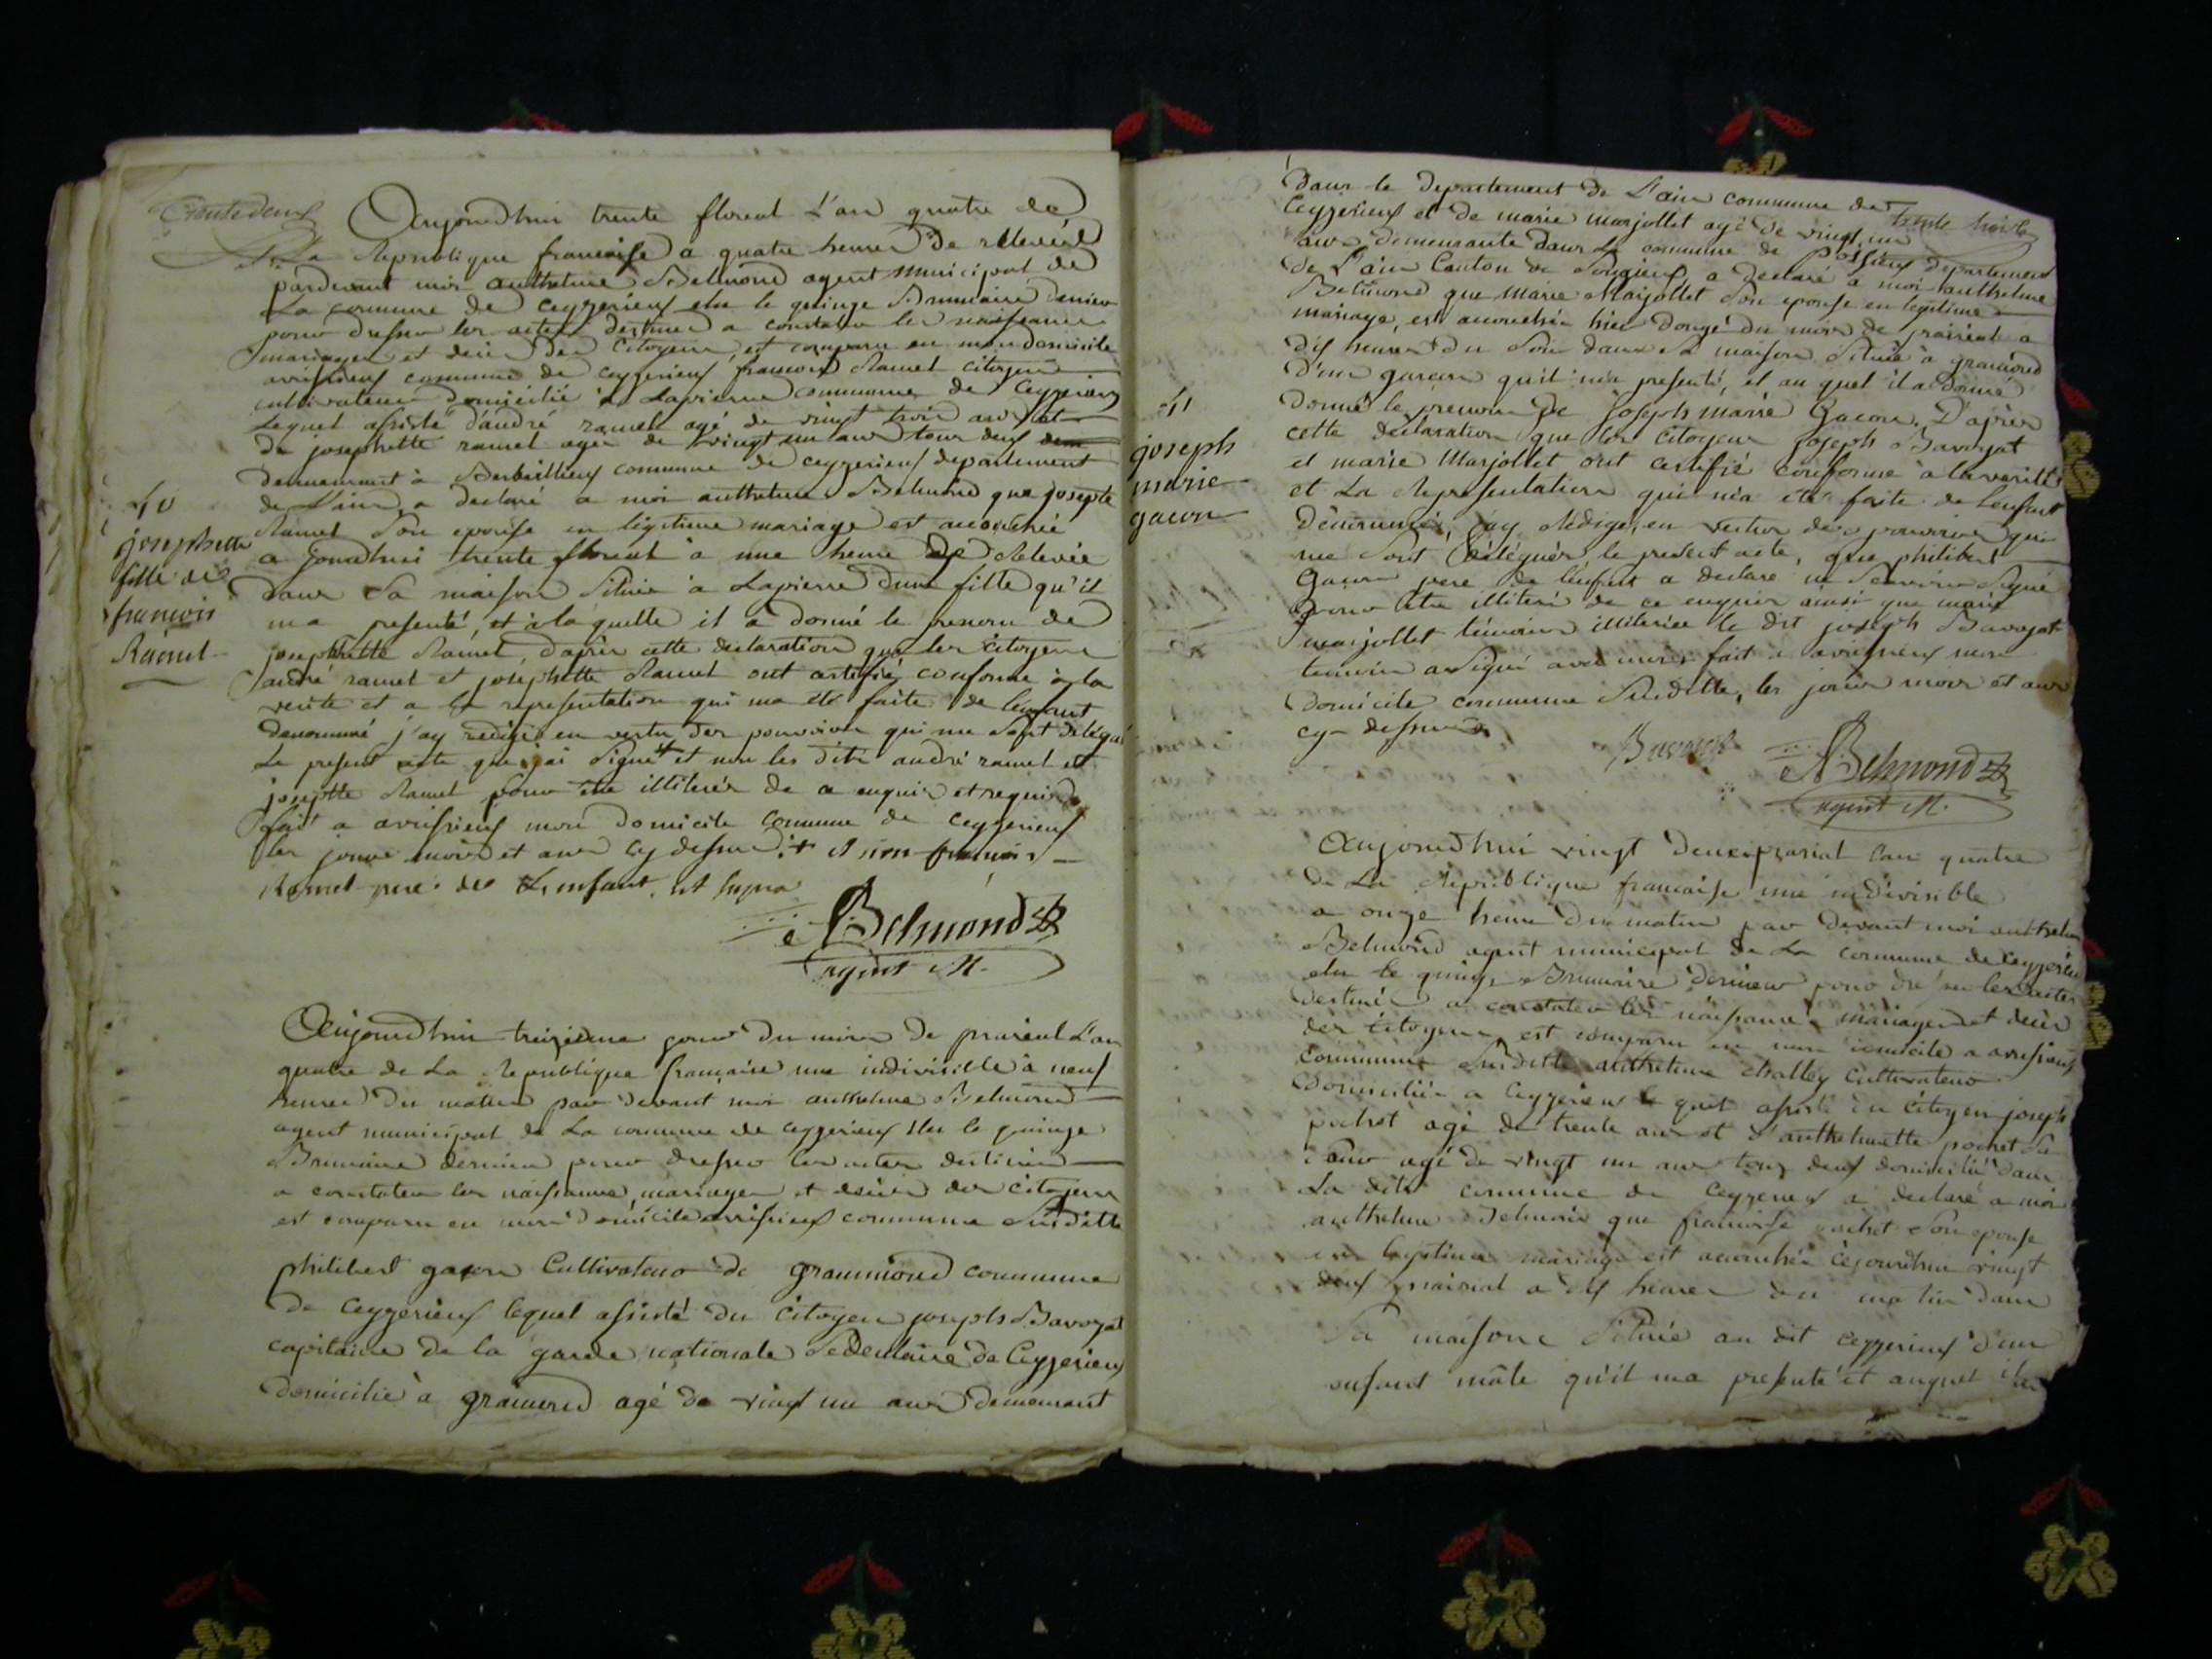 trente deux
Aujourdhui trente floreal L'an quatre de
La Republique francaise a quatre heures de relevée
pardevant moi anthelme Belmond agent municipal de
La commune de ceyzerieux elu le quinze Brumaire dernier
pour dresser les actes destinés a constater les naissances
mariages et decès des Citoyens, est comparu en mon domicile
avrissieux commune de ceyzerieux, francois Ramel citoyen
cultivateur domicilié à Lapierre commune de Ceyzerieux
Lequel assisté d'andré ramel agé de vingt trois ans et
de josephette ramel agée de vingt un ans tous deux
demeurant à commune de ceyzerieux departement
de L'ain, a declaré a moi anthelme Belmond que josepte
Ramel son epouse en légitime mariage est accouchée
a jourdhui trente floreal à une heure de Relevée
dans sa maison située à Lapierre d'une fille qu'il
ma presenté, et à la quelle il a donné le prenom de
josephette Ramel, d'après cette declaration que les citoyens
andré ramel et josephette Ramel ont certifié conforme à la
verité et a la representation qui ma été faite de lenfant
denommé j'ay redigé en vertu des pouvoirs qui me sont delegués
Le present acte que j'ai signé + et non les dits andré ramel et
josepte Ramel pour être illiterés de ce enquis et requis
fait a avrissieux mon domicile commune de ceyzerieux
les jour mois et an cy dessus. + et non francois
Ramel pere de L'enfant.
40
josephette
fille de
francois
Ramel
Belmond
agent M.
Aujourdhui treizieme jour du mois de prairial L'an
quatre de La Republique française une indivisible à neuf
heures du matin par devant moi anthelme Belmond
agent municipal de La commune de ceyzerieux elu le quinze
Brumaire dernier pour dresser les actes destinés
a constater les naissances, mariages et decès des citoyens
est comparu en mon domicile avrissieux commune susditte
philibert gacon Cultivateur de grammond commune
de Ceyzerieux lequel assisté du Citoyen joseph Bavozat
capitaine de la garde nationale sedentaire de Ceyzerieux
domicilié à gramond agé de vingt un ans demeurant
trente trois
dans le departement de L'ain commune de
Ceyzerieux et de marie marjollet agé de vingt un
ans demeurante dans la commune de departement
de L'ain Canton de a declaré a moi anthelme
Belmond que marie Marjollet son epouse en legitime
mariage, est accouchée hier douze du mois de prairial a
dix heures du soir dans sa maison située a gramond
d'un garcon qu'il m'a presenté, et au quel il a donné
donné le prenom de joseph marie Gacon. D'après
cette declaration que les citoyens joseph Bavozat
et marie Marjollet ont certifié conforme à la verité
et La Representation qui m'a été faite de Lenfant
Denommé, j'ay Redigé, en vertu des pouvoirs qui
me sont délégués le present acte, que philibert
Gacon pere de lenfant a declaré ne savoir signé
pour etre illiteré de ce enquis ainsi que marie
marjollet témoin illiterée le dit joseph Bavozat
temoin a signé avec moi fait a avrissieux mon
domicile commune susditte, les jour mois et an
cy dessus
41
joseph
marie
gacon
Bavozat
Belmond
agent M.
Aujourdhui vingt deux prairial L'an quatre
de La Republique francaise une indivisible
a onze heure du matin par devant moi anthelme
Belmond agent municipal de La commune de ceyzerieux
elu le quinze Brumaire dernier pour dresser les actes
destinés a constater les naissances mariages et decès
des citoyens est comparu en mon domicile a avrissieux
commune susditte anthelme challey cultivateur
domicilié a ceyzerieux le quel assisté du citoyen joseph
pochet agé de trente ans et d'anthelmette pochet sa
soeur agé de vingt un ans tous deux domicilié dans
La dite commune de Ceyzerieux a declaré a moi
anthelme Belmond que francoise pochet son epouse
en legitime mariage est accouchée cejourdhui vingt
deux prairial a dix heures du matin dans
sa maison située au dit ceyzerieux d'un
enfant mâle qu'il ma presenté et auquel il a